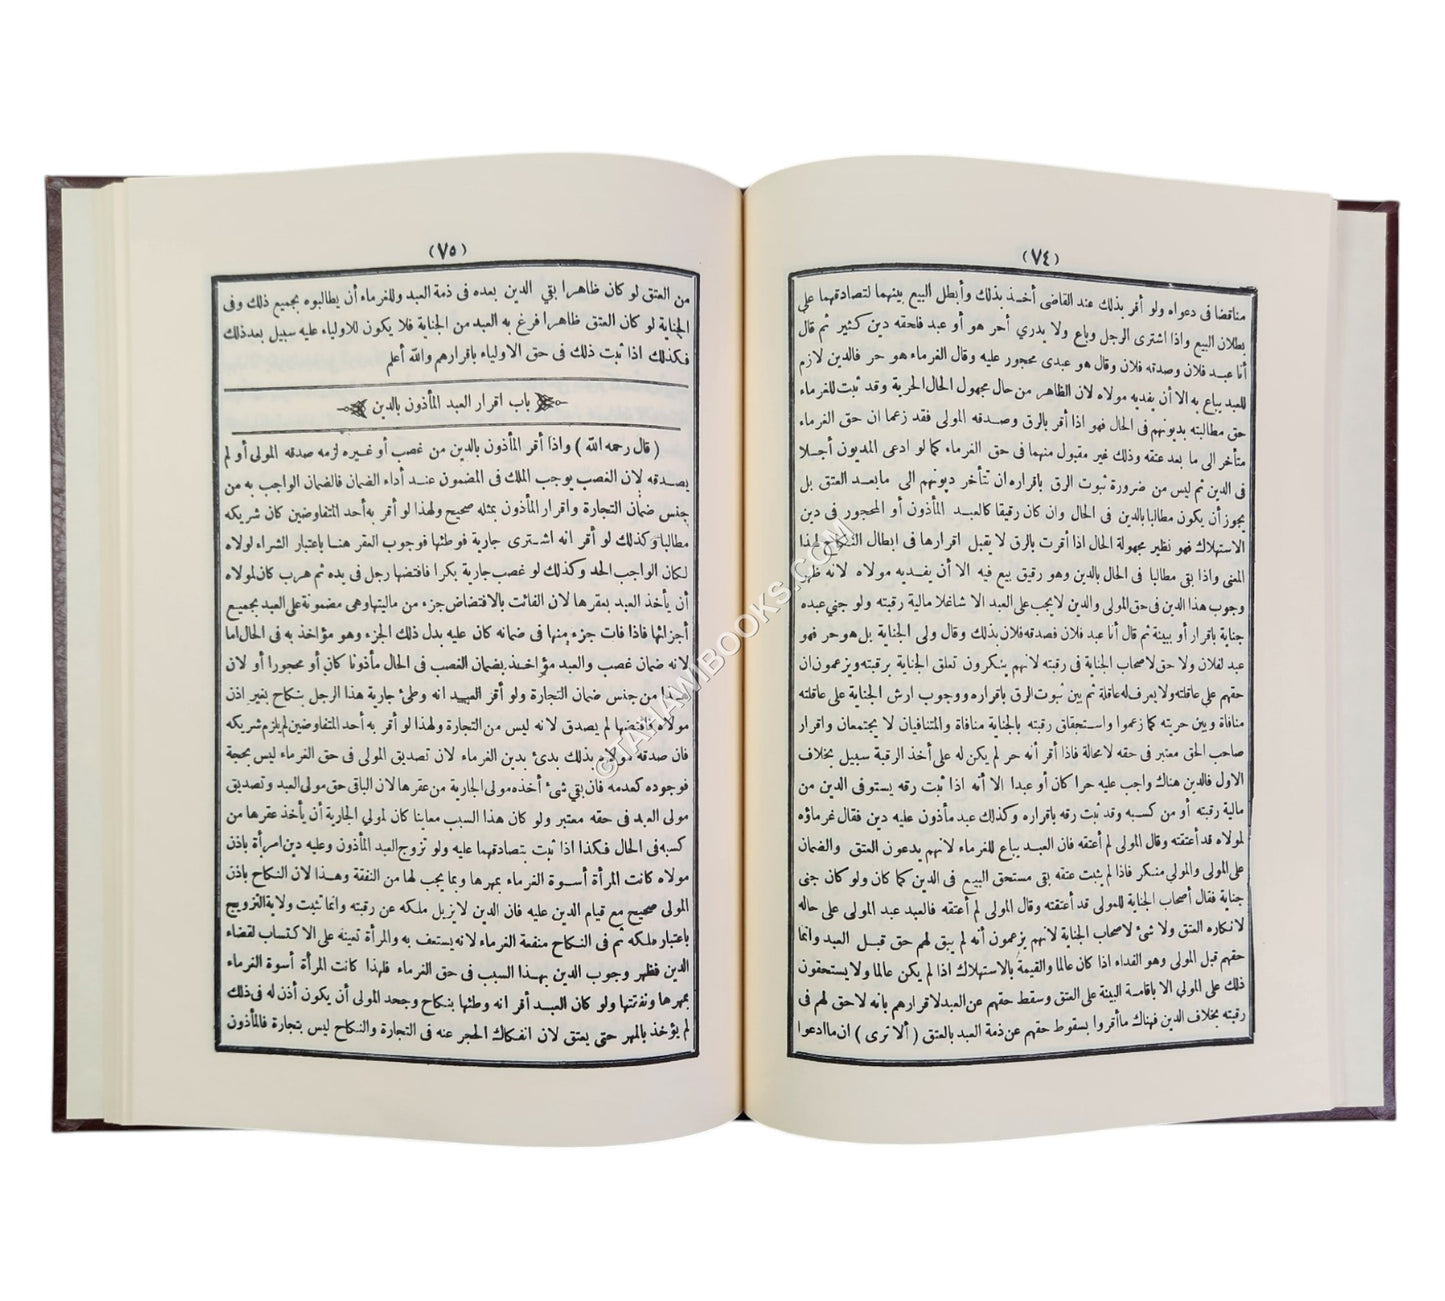 (٧٤)
مناقضا فى دعواه ولو أقر بذلك عند القاضى أخذ بذلك وأبطل البيع بينهما لتصادقهما على
بطلان البيع واذا اشترى الرجل وباع ولا يدري أحر هو أو عبد فلحقه دين كثير ثم قال
أنا عبد فلان وصدقه فلان وقال هو عبدى محجور عليه وقال الغرماء هو حر فالدين لازم
للعبد يباع به الا أن يفديه مولاه لان الظاهر من حال مجهول الحال الحرية وقد ثبت للغرماء
حق مطالبته بديونهم فى الحال فهو اذا أقر بالرق وصدقه المولى فقد زعما ان حق الغرماء
متأخر الى ما بعد عتقه وذلك غير مقبول منهما فى حق الغرماء كما لو ادعى المديون أجلا
فى الدين ثم ليس من ضرورة ثبوت الرق باقراره ان تتأخر ديونهم الى مابعد العتق بل
يجوز أن يكون مطالبا بالدين فى الحال وان كان رقيقا كالعبد المأذون أو المحجور فى دين
الاستهلاك فهو نظير مجهولة الحال اذا أقرت بالرق لا يقبل اقرارها فى ابطال النكاح لهذا
المعنى واذا بقى مطالبا فى الحال بالدين وهو رقيق بيع فيه الا أن يفديه مولاه لانه ظهر
وجوب هذا الدين فى حق المولى والدين لا يجب على العبد الا شاغلا مالية رقبته ولو جني عبده
جناية باقرار أو بينة ثم قال أنا عبد فلان فصدقه فلان بذلك وقال ولى الجناية بل هو حر فهو
عبد لفلان ولا حق لاصحاب الجناية فى رقبته لانهم ينكرون تعلق الجناية برقبته ويزعمون ان
حقهم على عاقلته ولا يعرف له عاقلة ثم بين ثبوت الرق باقراره ووجوب ارش الجناية على عاقلته
منافاة وبين حريته كما زعموا واستحقاق رقبته بالجناية منافاة والمتنافيان لا يجتمعان واقرار
صاحب الحق معتبر فى حقه لا محالة فاذا أقر أنه حر لم يكن له على أخذ الرقبة سبيل بخلاف
الاول فالدين هناك واجب عليه حرا كان أو عبدا الا أنه اذا ثبت رقه يستوفى الدين من
مالية رقبته أو من كسبه وقد ثبت رقه باقراره وكذلك عبد مأذون عليه دين فقال غرماؤه
لمولاه قد أعتقته وقال المولى لم أعتقه فان العبد يباع للغرماء لانهم يدعون العتق والضمان
على المولى والمولي منكر فاذا لم يثبت عتقه بقى مستحق البيع فى الدين كما كان ولو كان جنى
جناية فقال أصحاب الجناية للمولى قد أعتقته وقال المولى لم أعتقه فالعبد عبد المولى على حاله
لانكاره العتق ولا شئ لاصحاب الجناية لانهم يزعمون أنه لم يبق لهم حق قبل العبد وانما
حقهم قبل المولى وهو الفداء اذا كان عالما والقيمة بالاستهلاك اذا لم يكن عالما ولا يستحقون
ذلك على المولي الا باقامة البينة على العتق وسقط حقهم عن العبد لاقرارهم بانه لا حق لهم فى
رقبته بخلاف الدين فهناك ما أقروا بسقوط حقهم عن ذمة العبد بالعتق ( ألا ترى ) ان ما ادعوا
(٧٥)
من العتق لو كان ظاهرا بقي الدين بعده فى ذمة العبد وللغرماء أن يطالبوه بجميع ذلك وفى
الجناية لو كان العتق ظاهرا فرغ به العبد من الجناية فلا يكون للاولياء عليه سبيل بعد ذلك
فكذلك اذا ثبت ذلك فى حق الاولياء باقرارهم والله أعلم
باب اقرار العبد المأذون بالدين
( قال رحمه الله ) واذا أقر المأذون بالدين من غصب أو غيره لزمه صدقه المولى أو لم
يصدقه لان الغصب يوجب الملك فى المضمون عند أداء الضمان فالضمان الواجب به من
جنس ضمان التجارة واقرار المأذون بمثله صحيح ولهذا لو أقر به أحد المتفاوضين كان شريكه
مطالبا وكذلك لو أقر انه اشترى جارية فوطئها فوجوب العقر هنا باعتبار الشراء لولاه
لكان الواجب الحد وكذلك لو غصب جارية بكرا فافتضها رجل فى يده ثم هرب كان لمولاه
أن يأخذ العبد بعقرها لان الفائت بالافتضاض جزء من ماليتها وهى مضمونة على العبد بجميع
أجزائها فاذا فات جزء منها فى ضمانه كان عليه بدل ذلك الجزء وهو مؤاخذ به فى الحال اما
لانه ضمان غصب والعبد مؤاخذ بضمان الغصب فى الحال مأذونا كان أو محجورا أو لان
هذا من جنس ضمان التجارة ولو أقر العبد انه وطئ جارية هذا الرجل بنكاح بغير اذن
مولاه فافتضها لم يصدق لانه ليس من التجارة ولهذا لو أقر به أحد المتفاوضين لم يلزم شريكه
فان صدقه مولاه بذلك بدئ بدين الغرماء لان تصديق المولى فى حق الغرماء ليس بحجة
فوجوده كعدمه فان بقي شئ أخذه مولى الجارية من عقرها لان الباقى حق مولى العبد وتصديق
مولى العبد فى حقه معتبر ولو كان هذا السبب معاينا كان لمولي الجارية أن يأخذ عقرها من
كسبه فى الحال فكذا اذا ثبت بتصادقهما عليه ولو تزوج العبد المأذون وعليه دين امرأة باذن
مولاه كانت المرأة أسوة الغرماء بمهرها وبما يجب لها من النفقة وهذا لان النكاح باذن
المولى صحيح مع قيام الدين عليه فان الدين لا يزيل ملكه عن رقبته وانما تثبت ولاية التزويج
باعتبار ملكه ثم فى النكاح منفعة الغرماء لانه يستعف به والمرأة تعينه على الاكتساب لقضاء
الدين فظهر وجوب الدين بهذا السبب فى حق الغرماء فلهذا كانت المرأة أسوة الغرماء
بمهرها ونفقتها ولو كان العبد أقر انه وطئها بنكاح وجحد المولى أن يكون أذن له فى ذلك
لم يؤخذ بالمهر حتى يعتق لان انفكاك الحجر عنه فى التجارة والنكاح ليس بتجارة فالمأذون
©TAHAMIBOOKS.COM